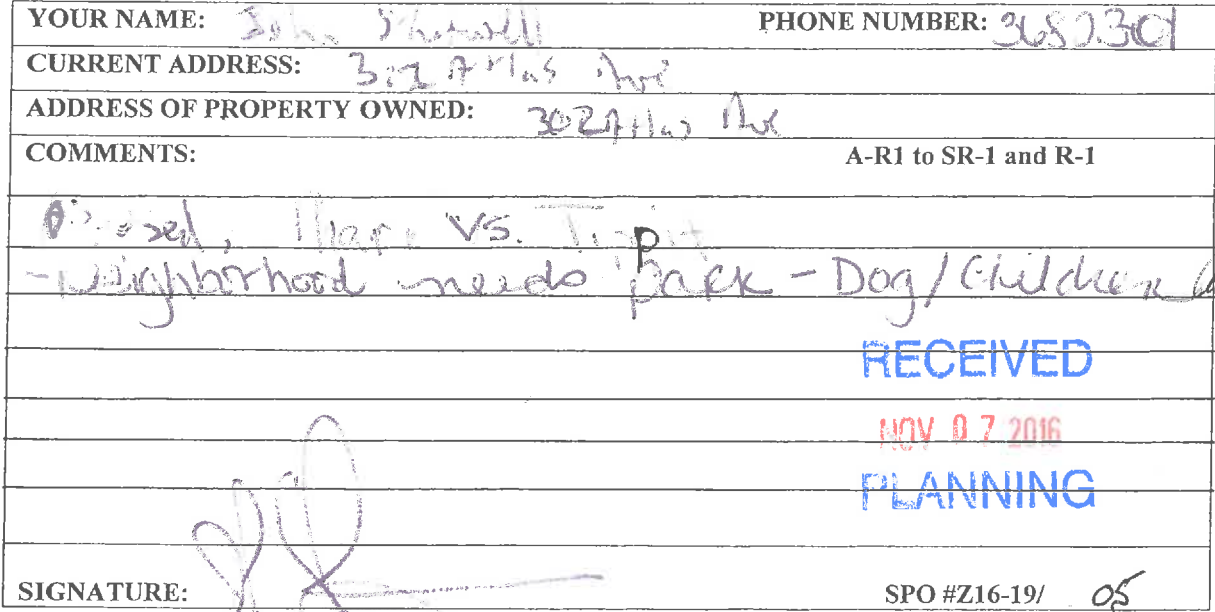 YOUR NAME: John PHONE NUMBER:
CURRENT ADDRESS: Atlas Ave
ADDRESS OF PROPERTY OWNED: 302 Atlas Ave
COMMENTS: A-R1 to SR-1 and R-1
vs.
- Neighborhood needs park - Dog/Children
RECEIVED
NOV 07 2016
PLANNING
SIGNATURE: SPO #Z16-19/ 05